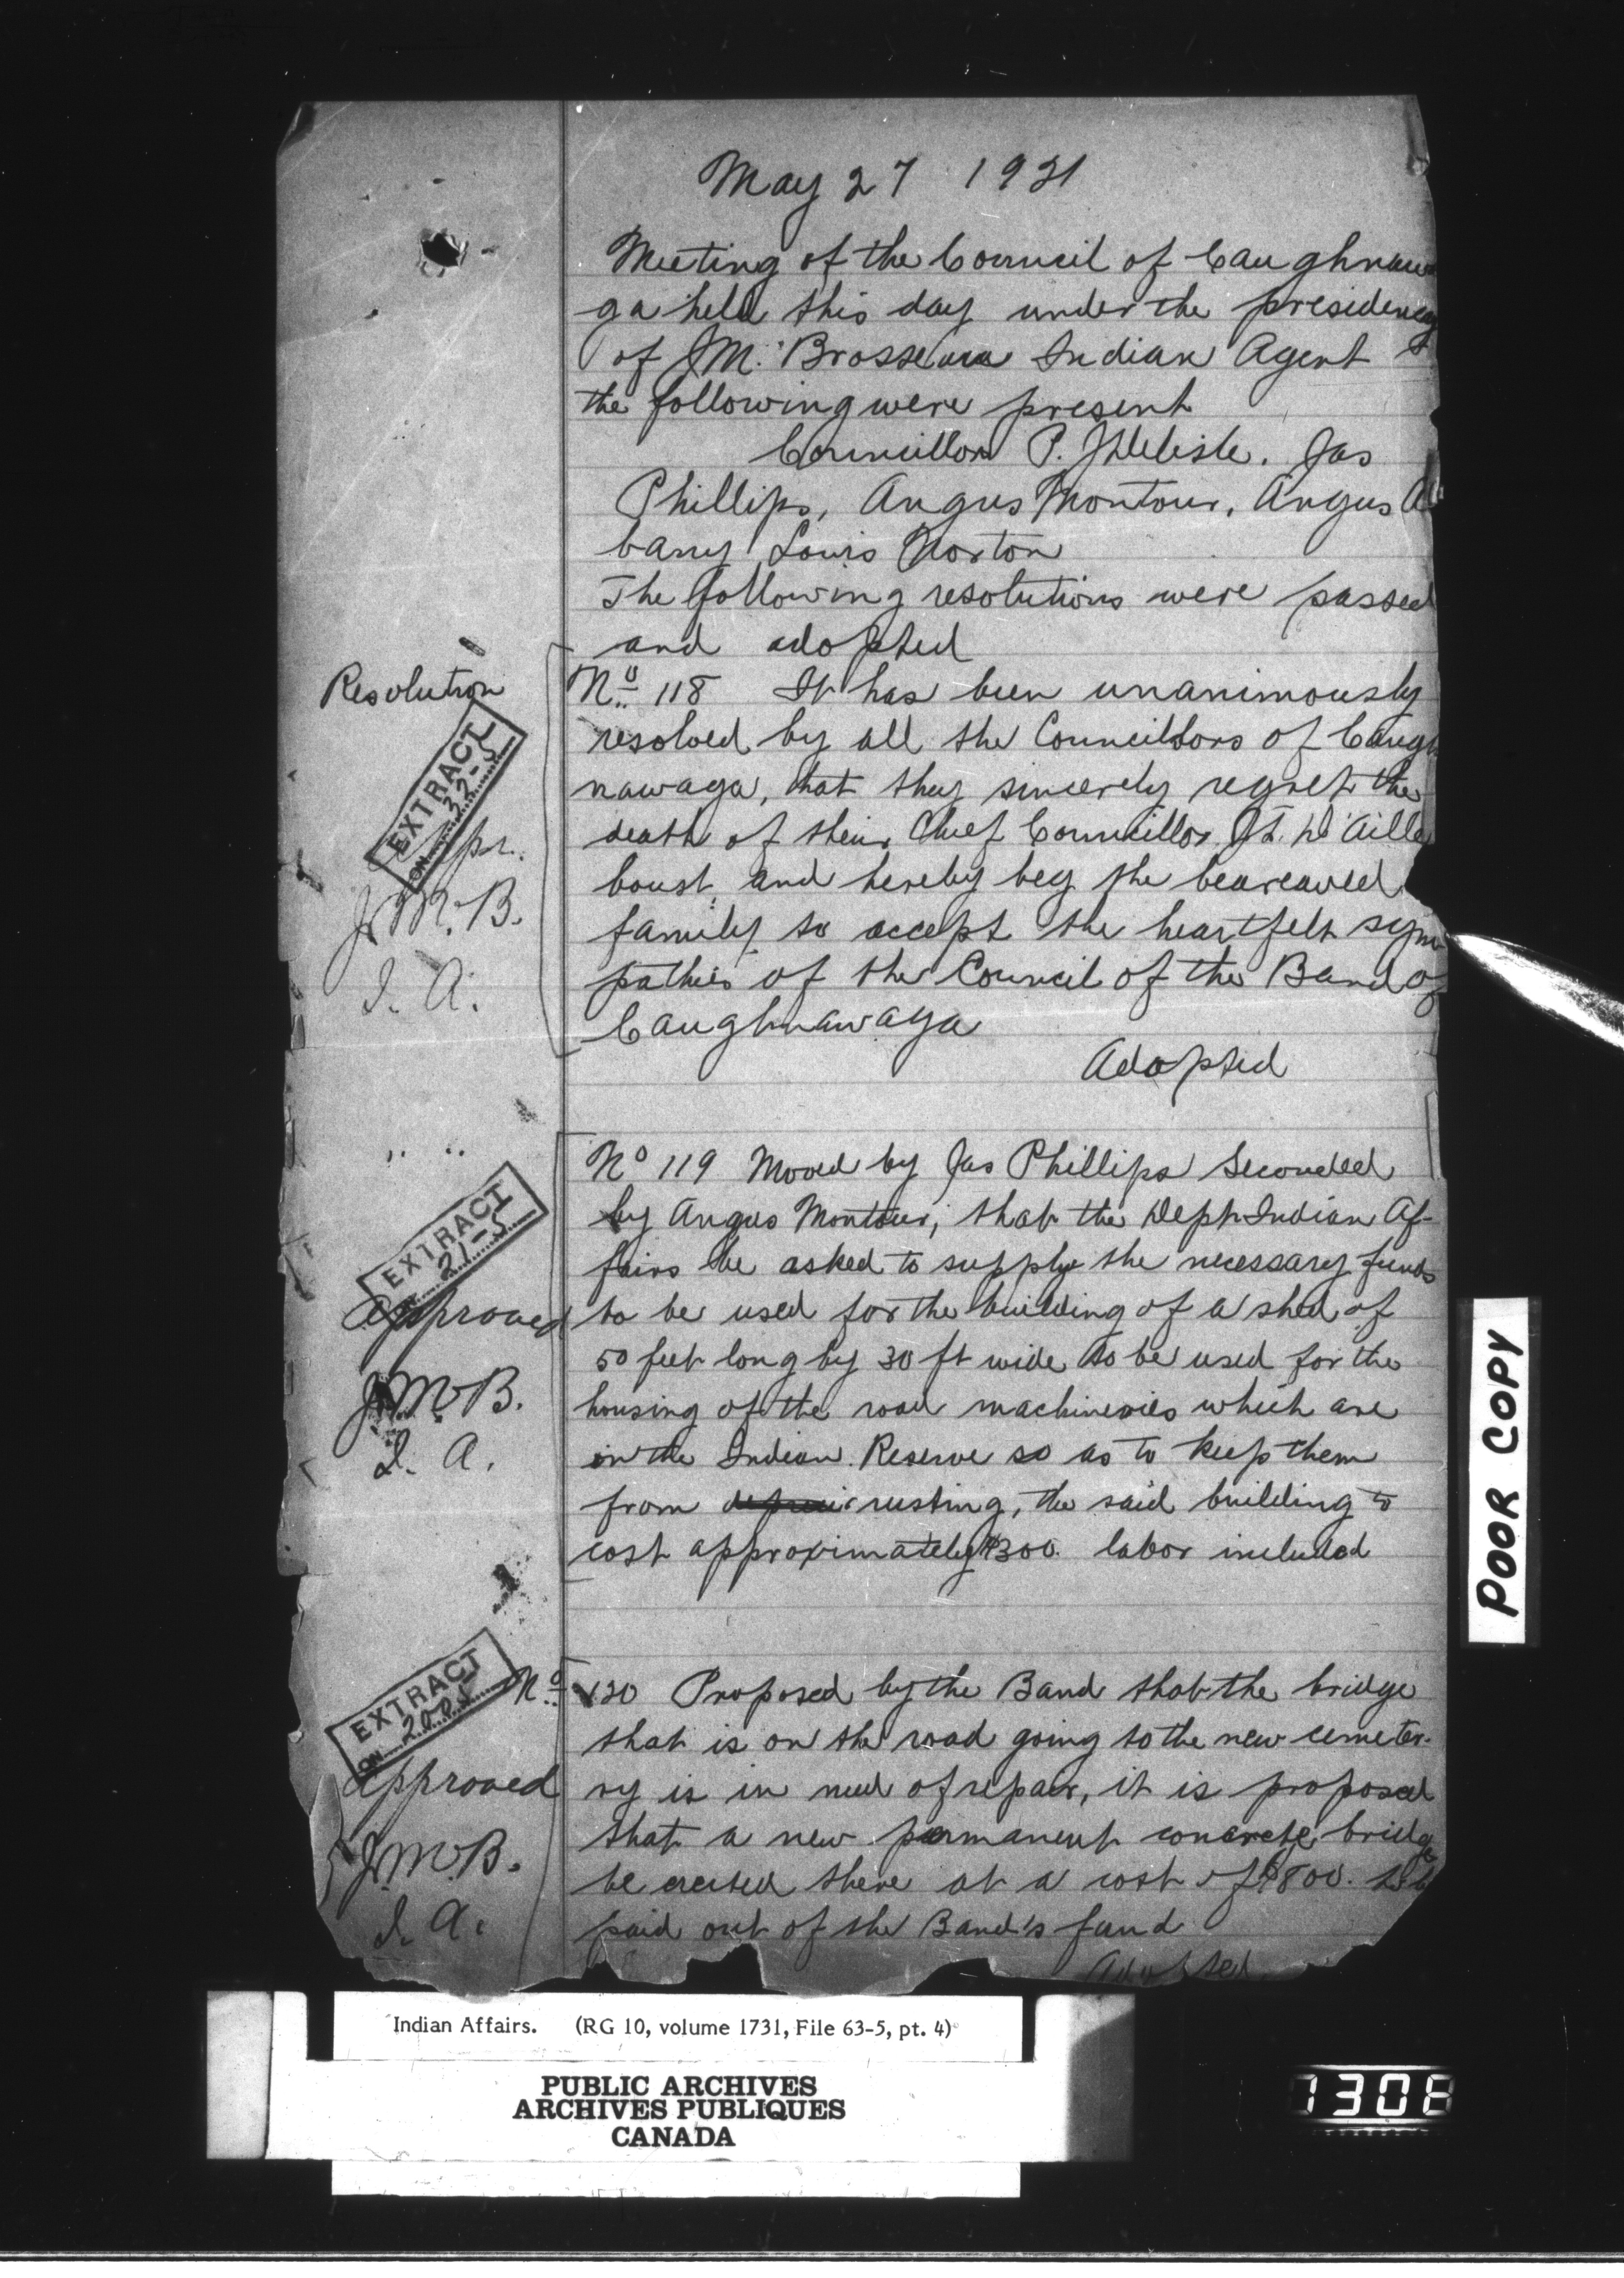 May 27 1921
Meeting of the Council of Caughnawa
ga held this day under the presidency
of J.M. Brosseau Indian Agent
the following were present
Councillors P. J Delisle. Jas
Phillips, Angus Montour, Angus Al
bany Louis Norton
The following resolutions were passed
and adopted
Resolution
No 118 It has been unanimously
resolved by all the Councillors of Caugh
nawaga, that they sincerely regret the
death of their Chief Councillor Jt. D'Aille
boust, and hereby beg the beareaved
family to accept the heartfelt sym
pathies of the Council of the Band of
Caughnawaga
Adopted
EXTRACT
ON 22-5
J.M.B.
I. A.
" "
No 119 Moved by Jas Phillips Seconded
by Angus Montour, that the Dept Indian Af-
fairs be asked to supply the necessary funds
to be used for the building of a shed of
50 feet long by 30 ft wide to be used for the
housing of the road machineries which are
on the Indian Reserve so as to keep them
from rusting, the said building to
cost approximately $300. labor included
EXTRACT
ON 21-5
Approved
J.M.B.
I. A.
No 120 Proposed by the Band that the bridge
that is on the road going to the new cemeter-
ry is in need of repair, it is proposed
that a new permanent concrete bridge
be erected there at a cost of $800. to be
paid out of the Band's fund
Adopted
EXTRACT
ON 20-5
Approved
J.M.B.
I. A.
POOR COPY
Indian Affairs. (RG 10, volume 1731, File 63-5, pt. 4)
PUBLIC ARCHIVES
ARCHIVES PUBLIQUES
CANADA